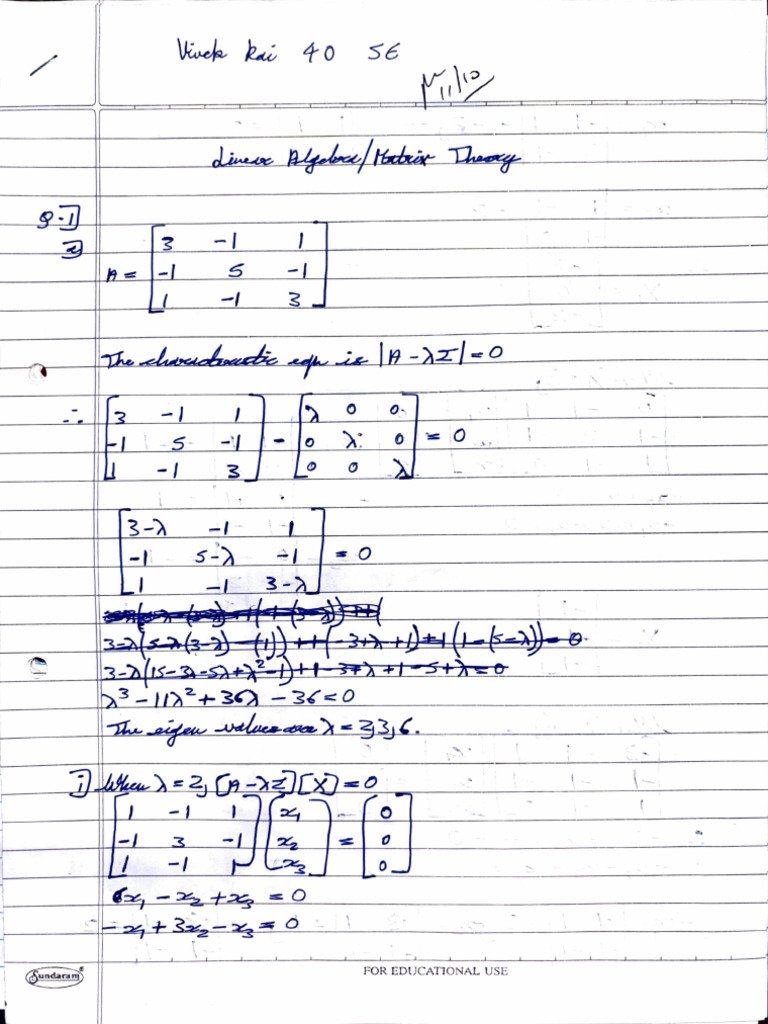 Vivek Rai 40 SE
11/10
Linear Algebra/Matrix Theory
Q-1]
A = [3 -1 1
-1 5 -1
1 -1 3]
The characteristic eqn is |A - λI| = 0
∴ [3 -1 1] - [λ 0 0]
[-1 5 -1] - [0 λ 0] = 0
[1 -1 3] [0 0 λ]
[3-λ -1 1]
[-1 5-λ -1] = 0
[1 -1 3-λ]
3-λ(5-λ(3-λ) - (1)) + 1(-3+λ+1) + 1(1-(5-λ)) = 0
3-λ(15-3λ-5λ+λ²-1) + 1-3+λ+1-5+λ = 0
λ³ - 11λ² + 36λ - 36 = 0
The eigen values are λ = 2, 3, 6.
i] When λ = 2, [A - λI][X] = 0
[1 -1 1] [x₁] [0]
[-1 3 -1] [x₂] = [0]
[1 -1 1] [x₃] [0]
x₁ - x₂ + x₃ = 0
-x₁ + 3x₂ - x₃ = 0
Sundaram®
FOR EDUCATIONAL USE